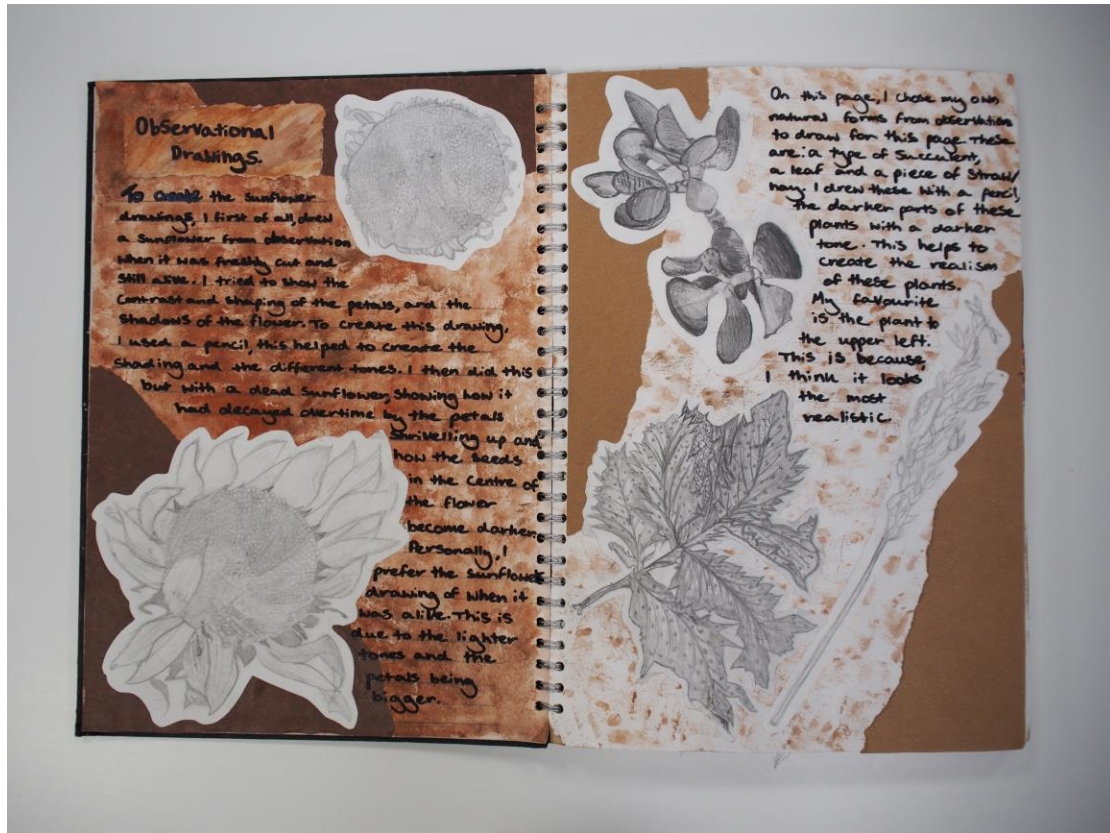 Observational
Drawings.
To create the sunflower
drawings, I first of all, drew
a sunflower from observation
when it was freshly cut and
still alive. I tried to show the
contrast and shaping of the petals, and the
shadows of the flower. To create this drawing,
I used a pencil, this helped to create the
shading and the different tones. I then did this
but with a dead sunflower, showing how it
had decayed overtime by the petals
shrivelling up and
how the seeds
in the centre of
the flower
become darker.
Personally, I
prefer the sunflower
drawing of when it
was alive. This is
due to the lighter
tones and the
petals being
bigger.
On this page, I chose my own
natural forms from observation
to draw for this page. These
are: a type of succulent,
a leaf and a piece of straw/
hay. I drew these with a pencil,
the darker parts of these
plants with a darker
tone. This helps to
create the realism
of these plants.
My favourite
is the plant to
the upper left.
This is because,
I think it looks
the most
realistic.